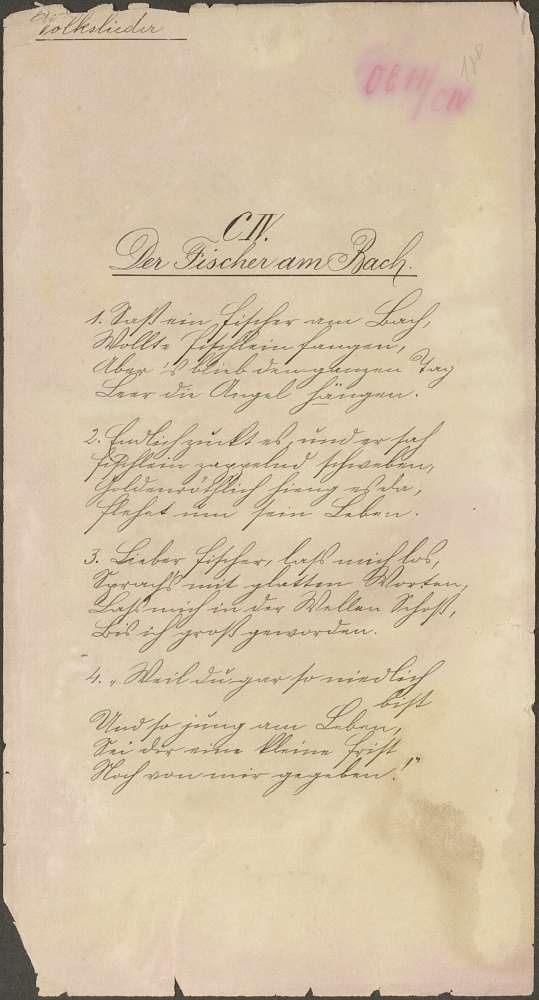 Volkslieder
118
Ob 11/CIV
CIV.
Der Fischer am Bach.
1. Saß ein Fischer am Bach,
Wollte Fischlein fangen,
Aber 's blieb den ganzen Tag
Leer die Angel hängen.
2. Endlich zuckt es, und er sah
Fischlein zappelnd schweben,
Goldenröthlich hieng es da,
Flehet um sein Leben.
3. Lieber Fischer, laß mich los,
Sprach's mit glatten Worten,
Laß mich in der Wellen Schoß,
Bis ich groß geworden.
4. „Weil du gar so niedlich
bist
Und so jung am Leben,
Sei dir eine kleine Frist
Noch von mir gegeben!"